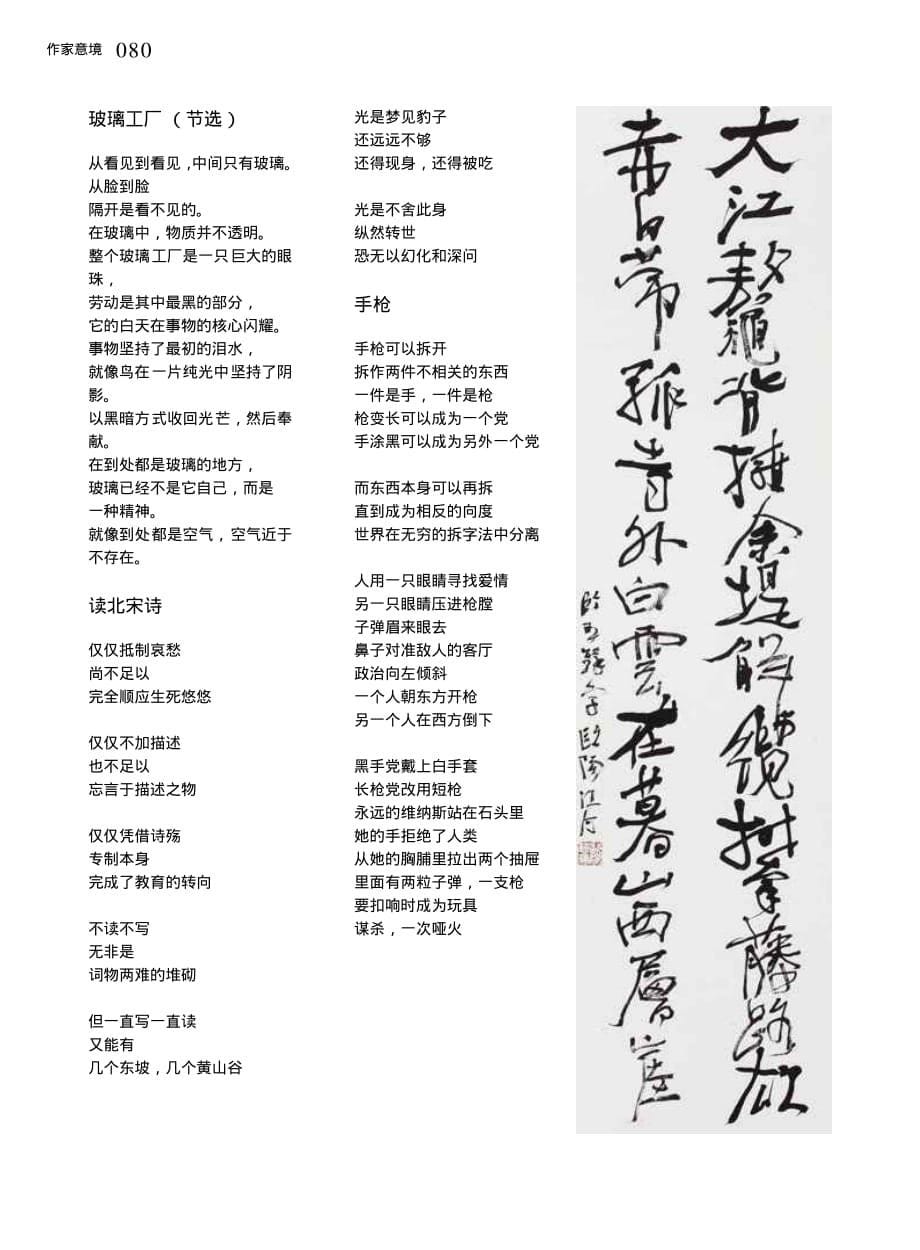 作家意境 080
玻璃工厂（节选）
从看见到看见，中间只有玻璃。
从脸到脸
隔开是看不见的。
在玻璃中，物质并不透明。
整个玻璃工厂是一只巨大的眼
珠，
劳动是其中最黑的部分，
它的白天在事物的核心闪耀。
事物坚持了最初的泪水，
就像鸟在一片纯光中坚持了阴
影。
以黑暗方式收回光芒，然后奉
献。
在到处都是玻璃的地方，
玻璃已经不是它自己，而是
一种精神。
就像到处都是空气，空气近于
不存在。
读北宋诗
仅仅抵制哀愁
尚不足以
完全顺应生死悠悠
仅仅不加描述
也不足以
忘言于描述之物
仅仅凭借诗殇
专制本身
完成了教育的转向
不读不写
无非是
词物两难的堆砌
但一直写一直读
又能有
几个东坡，几个黄山谷
光是梦见豹子
还远远不够
还得现身，还得被吃
光是不舍此身
纵然转世
恐无以幻化和深问
手枪
手枪可以拆开
拆作两件不相关的东西
一件是手，一件是枪
枪变长可以成为一个党
手涂黑可以成为另外一个党
而东西本身可以再拆
直到成为相反的向度
世界在无穷的拆字法中分离
人用一只眼睛寻找爱情
另一只眼睛压进枪膛
子弹眉来眼去
鼻子对准敌人的客厅
政治向左倾斜
一个人朝东方开枪
另一个人在西方倒下
黑手党戴上白手套
长枪党改用短枪
永远的维纳斯站在石头里
她的手拒绝了人类
从她的胸脯里拉出两个抽屉
里面有两粒子弹，一支枪
要扣响时成为玩具
谋杀，一次哑火
大江背擁余堤解纜樹拿藤路欲
赤日常青外白雲在暮山西層崖
歐陽江河